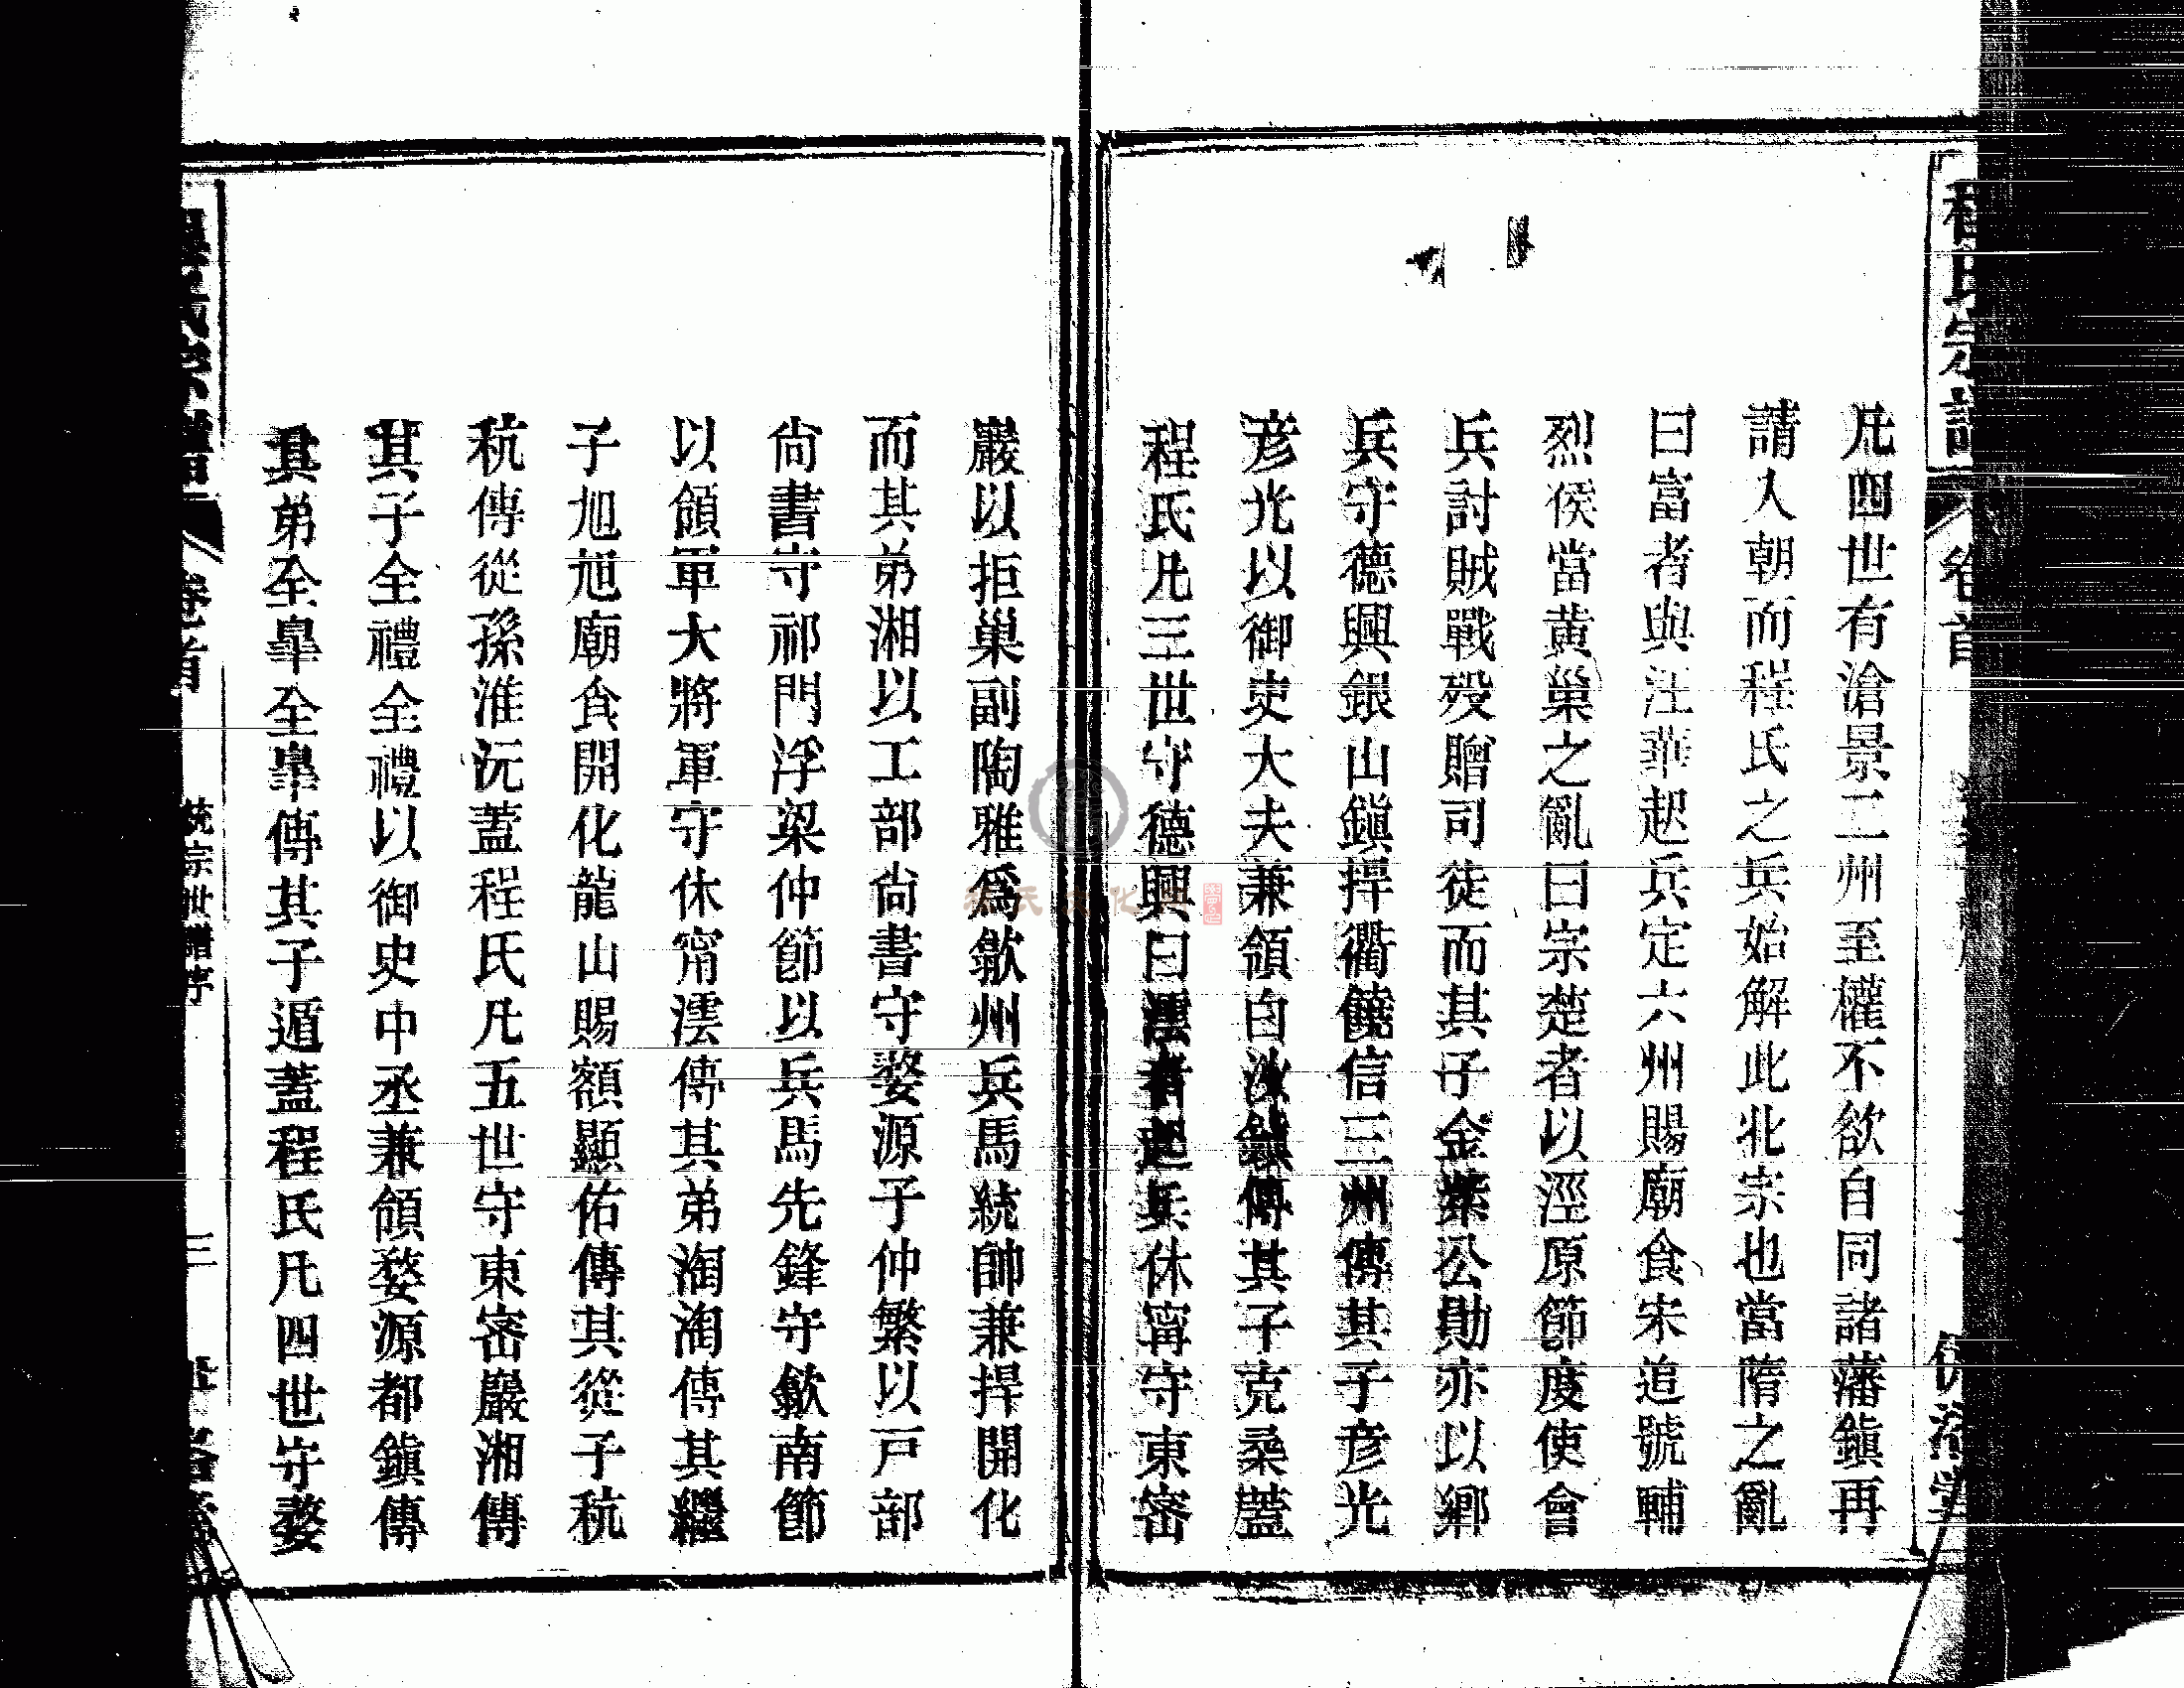 凡四世有滄景二州至權不欲自同諸藩鎮再
請入朝而程氏之兵始解此北宗也當隋之亂
曰富者與汪華起兵定六州賜廟食宋追號輔
烈侯當黄巢之亂曰宗楚者以涇原節度使會
兵討賊戰歿贈司徒而其子金紫公勛亦以鄉
兵守德興銀山鎮捍衢饒信三州傳其子彦光
彦光以御史大夫兼領白沙鎮傳其子克柔蓋
程氏凡三世守德興曰澐者起兵休甯守東密
巖以拒巢副陶雅爲歙州兵馬統帥兼捍開化
而其弟湘以工部尙書守婺源子仲繁以戸部
尙書守祁門浮梁仲節以兵馬先鋒守歙南節
以領軍大將軍守休甯澐傳其弟淘淘傳其繼
子旭旭廟食開化龍山賜額顯佑傳其從子秔
秔傳從孫淮沅蓋程氏凡五世守東密巖湘傳
其子全禮全禮以御史中丞兼領婺源都鎮傳
其弟全臯全臯傳其子遁蓋程氏凡四世守婺
卷首
統宗世譜序
三